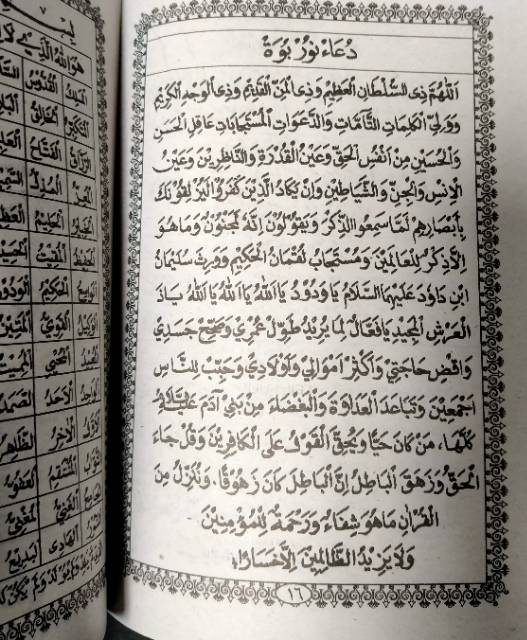 دُعَاءْ نُوْرْ بُوَةْ
اَللّٰهُمَّ ذِى السُّلْطَانِ الْعَظِيْمِ وَذِى الْمَنِّ الْقَدِيْمِ وَذِى الْوَجْهِ الْكَرِيْمِ
وَوَلِيِّ الْكَلِمَاتِ التَّآمَّاتِ وَالدَّعَوَاتِ الْمُسْتَجَابَاتِ عَاقِلِ الْحَسَنِ
وَالْحُسَيْنِ مِنْ اَنْفُسِ الْحَقِّ وَعَيْنِ الْقُدْرَةِ وَالنَّاظِرِيْنَ وَعَيْنِ
الْاِنْسِ وَالْجِنِّ وَالشَّيَاطِيْنَ وَاِنْ يَكَادُ الَّذِيْنَ كَفَرُوْا لَيُزْلِقُوْنَكَ
بِاَبْصَارِهِمْ لَمَّا سَمِعُوا الذِّكْرَ وَيَقُوْلُوْنَ اِنَّهُ لَمَجْنُوْنٌ وَمَاهُوَ
اِلَّا ذِكْرٌ لِلْعَالَمِيْنَ وَمُسْتَجَابُ لُقْمَانَ الْحَكِيْمِ وَوَرِثَ سُلَيْمَانُ
ابْنِ دَاوُدَ عَلَيْهِمَا السَّلَامُ يَاوَدُوْدُ يَا اَللّٰهُ يَا اَللّٰهُ يَا اَللّٰهُ يَاذَ
الْعَرْشِ الْمَجِيْدِ يَافَعَّالُ لِمَا يُرِيْدُ طَوِّلْ عُمْرِيْ وَصَحِّحْ جَسَدِيْ
وَاقْضِ حَاجَتِيْ وَاَكْثِرْ اَمْوَالِيْ وَاَوْلَادِيْ وَحَبِّبْ لِلنَّاسِ
اَجْمَعِيْنَ وَتَبَاعَدِ الْعَدَاوَةَ وَالْبَغْضَاءَ مِنْ بَنِيْ اٰدَمَ عَلَيْهِ السَّلَامُ
كُلَّهَا، مَنْ كَانَ حَيًّا وَيَحِقَّ الْقَوْلُ عَلَى الْكَافِرِيْنَ وَقُلْ جَاءَ
الْحَقُّ وَزَهَقَ الْبَاطِلُ اِنَّ الْبَاطِلَ كَانَ زَهُوْقًا، وَنُنَزِّلُ مِنَ
الْقُرْاٰنِ مَاهُوَ شِفَاءٌ وَرَحْمَةٌ لِلْمُؤْمِنِيْنَ
وَلَا يَزِيْدُ الظَّالِمِيْنَ اِلَّا خَسَارًا
١٦
هُوَ اللّٰهُ الَّذِيْ لَا
اَلْمَلِكُ اَلْقُدُّوْسُ
اَلْمُتَكَبِّرُ اَلْخَالِقُ
اَلرَّزَّاقُ اَلْفَتَّاحُ
اَلْمُعِزُّ اَلْمُذِلُّ
اَلْخَبِيْرُ اَلْحَلِيْمُ
اَلْحَفِيْظُ اَلْمُقِيْتُ
اَلْوَاسِعُ اَلْحَكِيْمُ
اَلْوَكِيْلُ اَلْقَوِيُّ
اَلْمُحْيِيْ
اَلْوَاجِدُ اَلْاَحَدُ
اَلْاٰخِرُ
اَلْمُنْتَقِمُ
اَلْجَامِعُ اَلْغَنِيُّ
اَلنُّوْرُ اَلْهَادِيْ